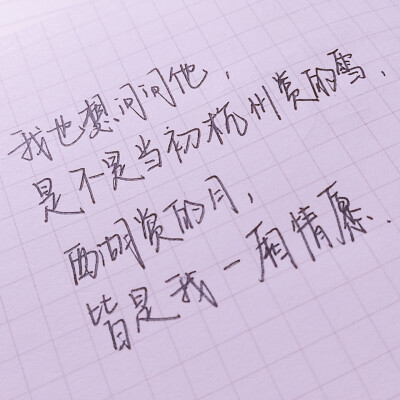 我也想问问他，
是不是当初杭州赏的雪，
西湖赏的月，
皆是我一厢情愿.